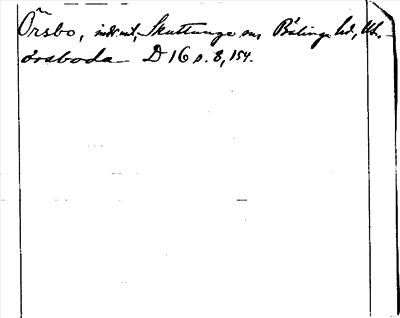 Örsbo, indr. mt, Skuttunge sn, Bälinge hd, Upl.
örsboda D 16 s. 8, 154.